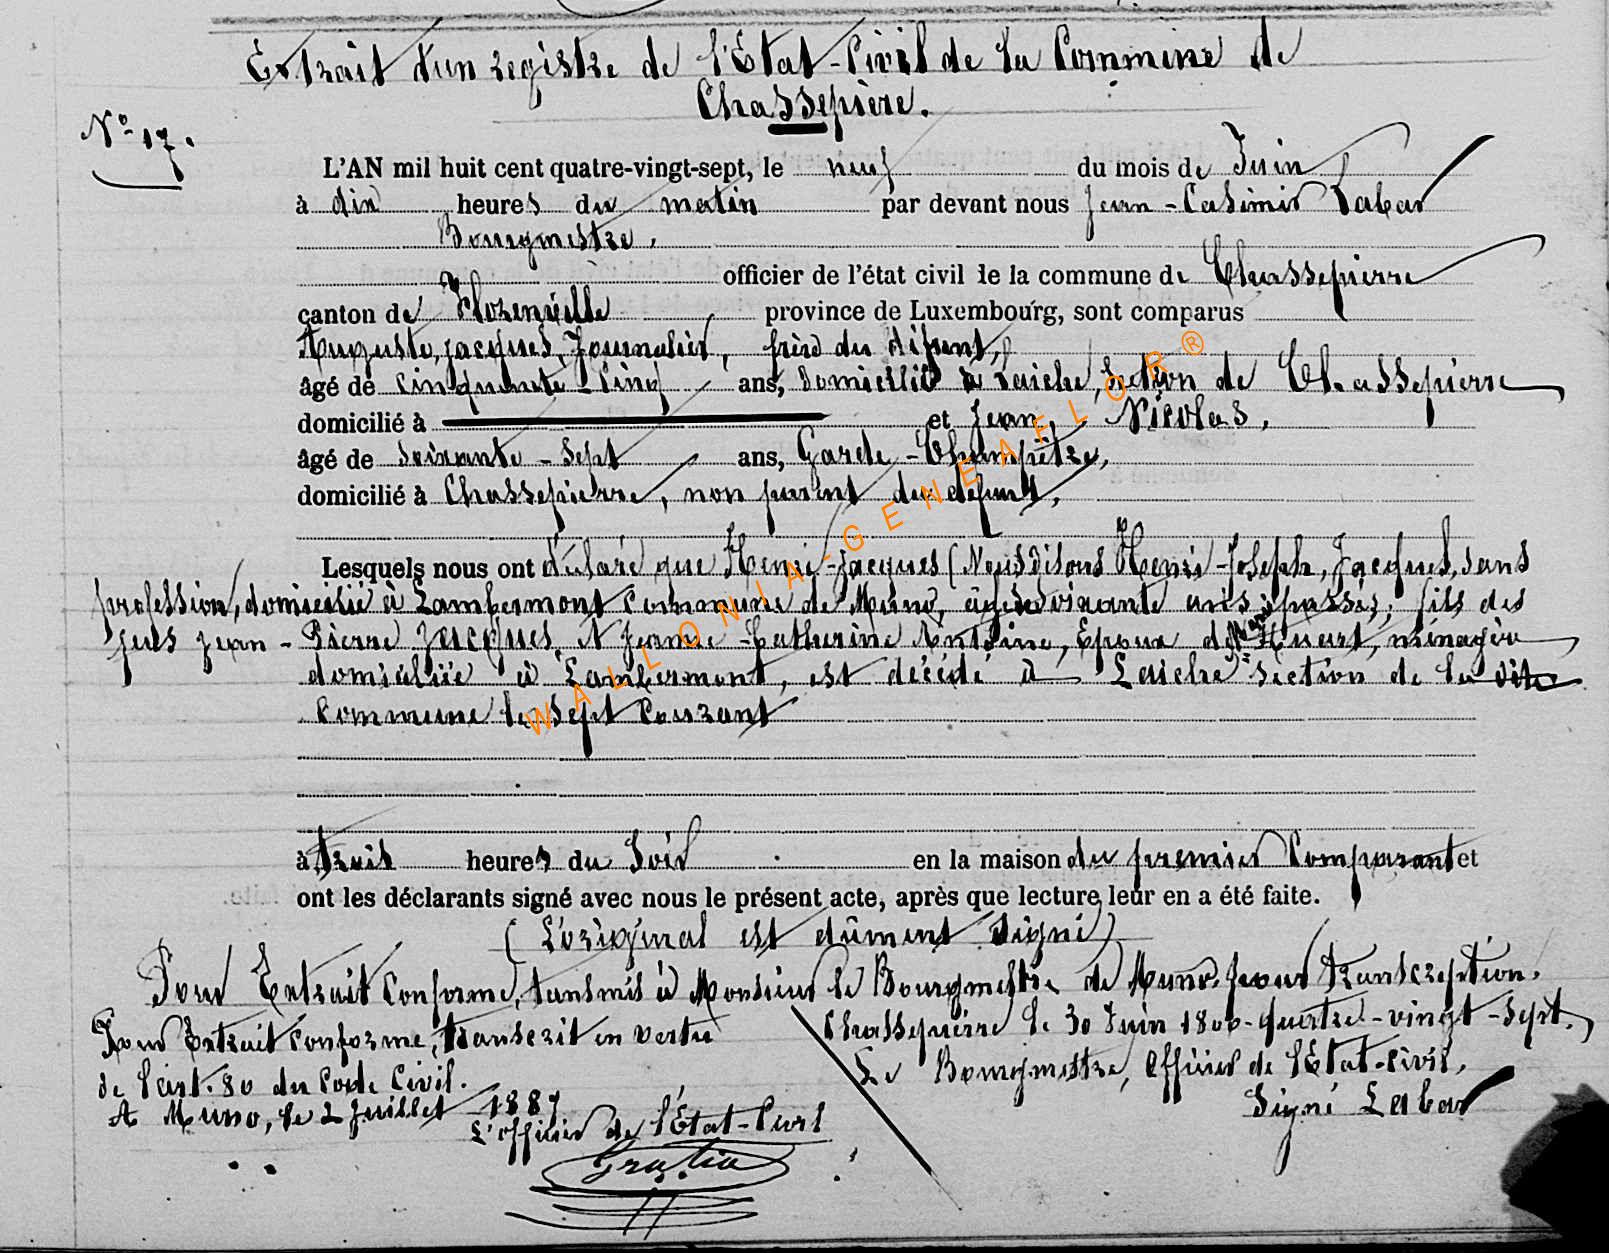 Extrait d'un registre de l'Etat-Civil de la Commune de
Chassepière.
N° 17.
L'AN mil huit cent quatre-vingt-sept, le neuf du mois de Juin
à dix heures du matin par devant nous Jean-Casimir Labar
Bourgmestre,
officier de l'état civil de la commune de Chassepierre
canton de Florenville province de Luxembourg, sont comparus
Auguste, Jacques, Journalier, frère du défunt,
âgé de cinquante-cinq ans, domicilié à Laiche, section de Chassepierre
domicilié à et Jean, Nicolas,
âgé de soixante-sept ans, Garde-Champêtre,
domicilié à Chassepierre, non parent du défunt,
Lesquels nous ont déclaré que Henri-Jacques (Nous disons Henri-Joseph, Jacques, sans
profession, domicilié à Lambermont Commune de Muno, âgé de soixante ans passés, fils des
feus Jean-Pierre Jacques, & Jeanne-Catherine Antoine, Epoux de Huart, ménagère
domiciliée à Lambermont, est décédé à Laiche section de la dite
Commune le sept Courant
à trois heures du Soir en la maison du premier Comparant et
ont les déclarants signé avec nous le présent acte, après que lecture leur en a été faite.
(L'original est dûment Signé)
Pour Extrait Conforme, transmis à Monsieur le Bourgmestre de Muno, pour transcription.
Chassepierre le 30 Juin 1800-quatre-vingt-sept,
Le Bourgmestre, Officier de l'Etat-Civil,
Signé Labar
Pour Extrait Conforme, transcrit en vertu
de l'art. 80 du Code Civil.
A Muno, le 2 Juillet 1887
L'officier de l'État-Civil
WALLONIA-GENEAFLOR®